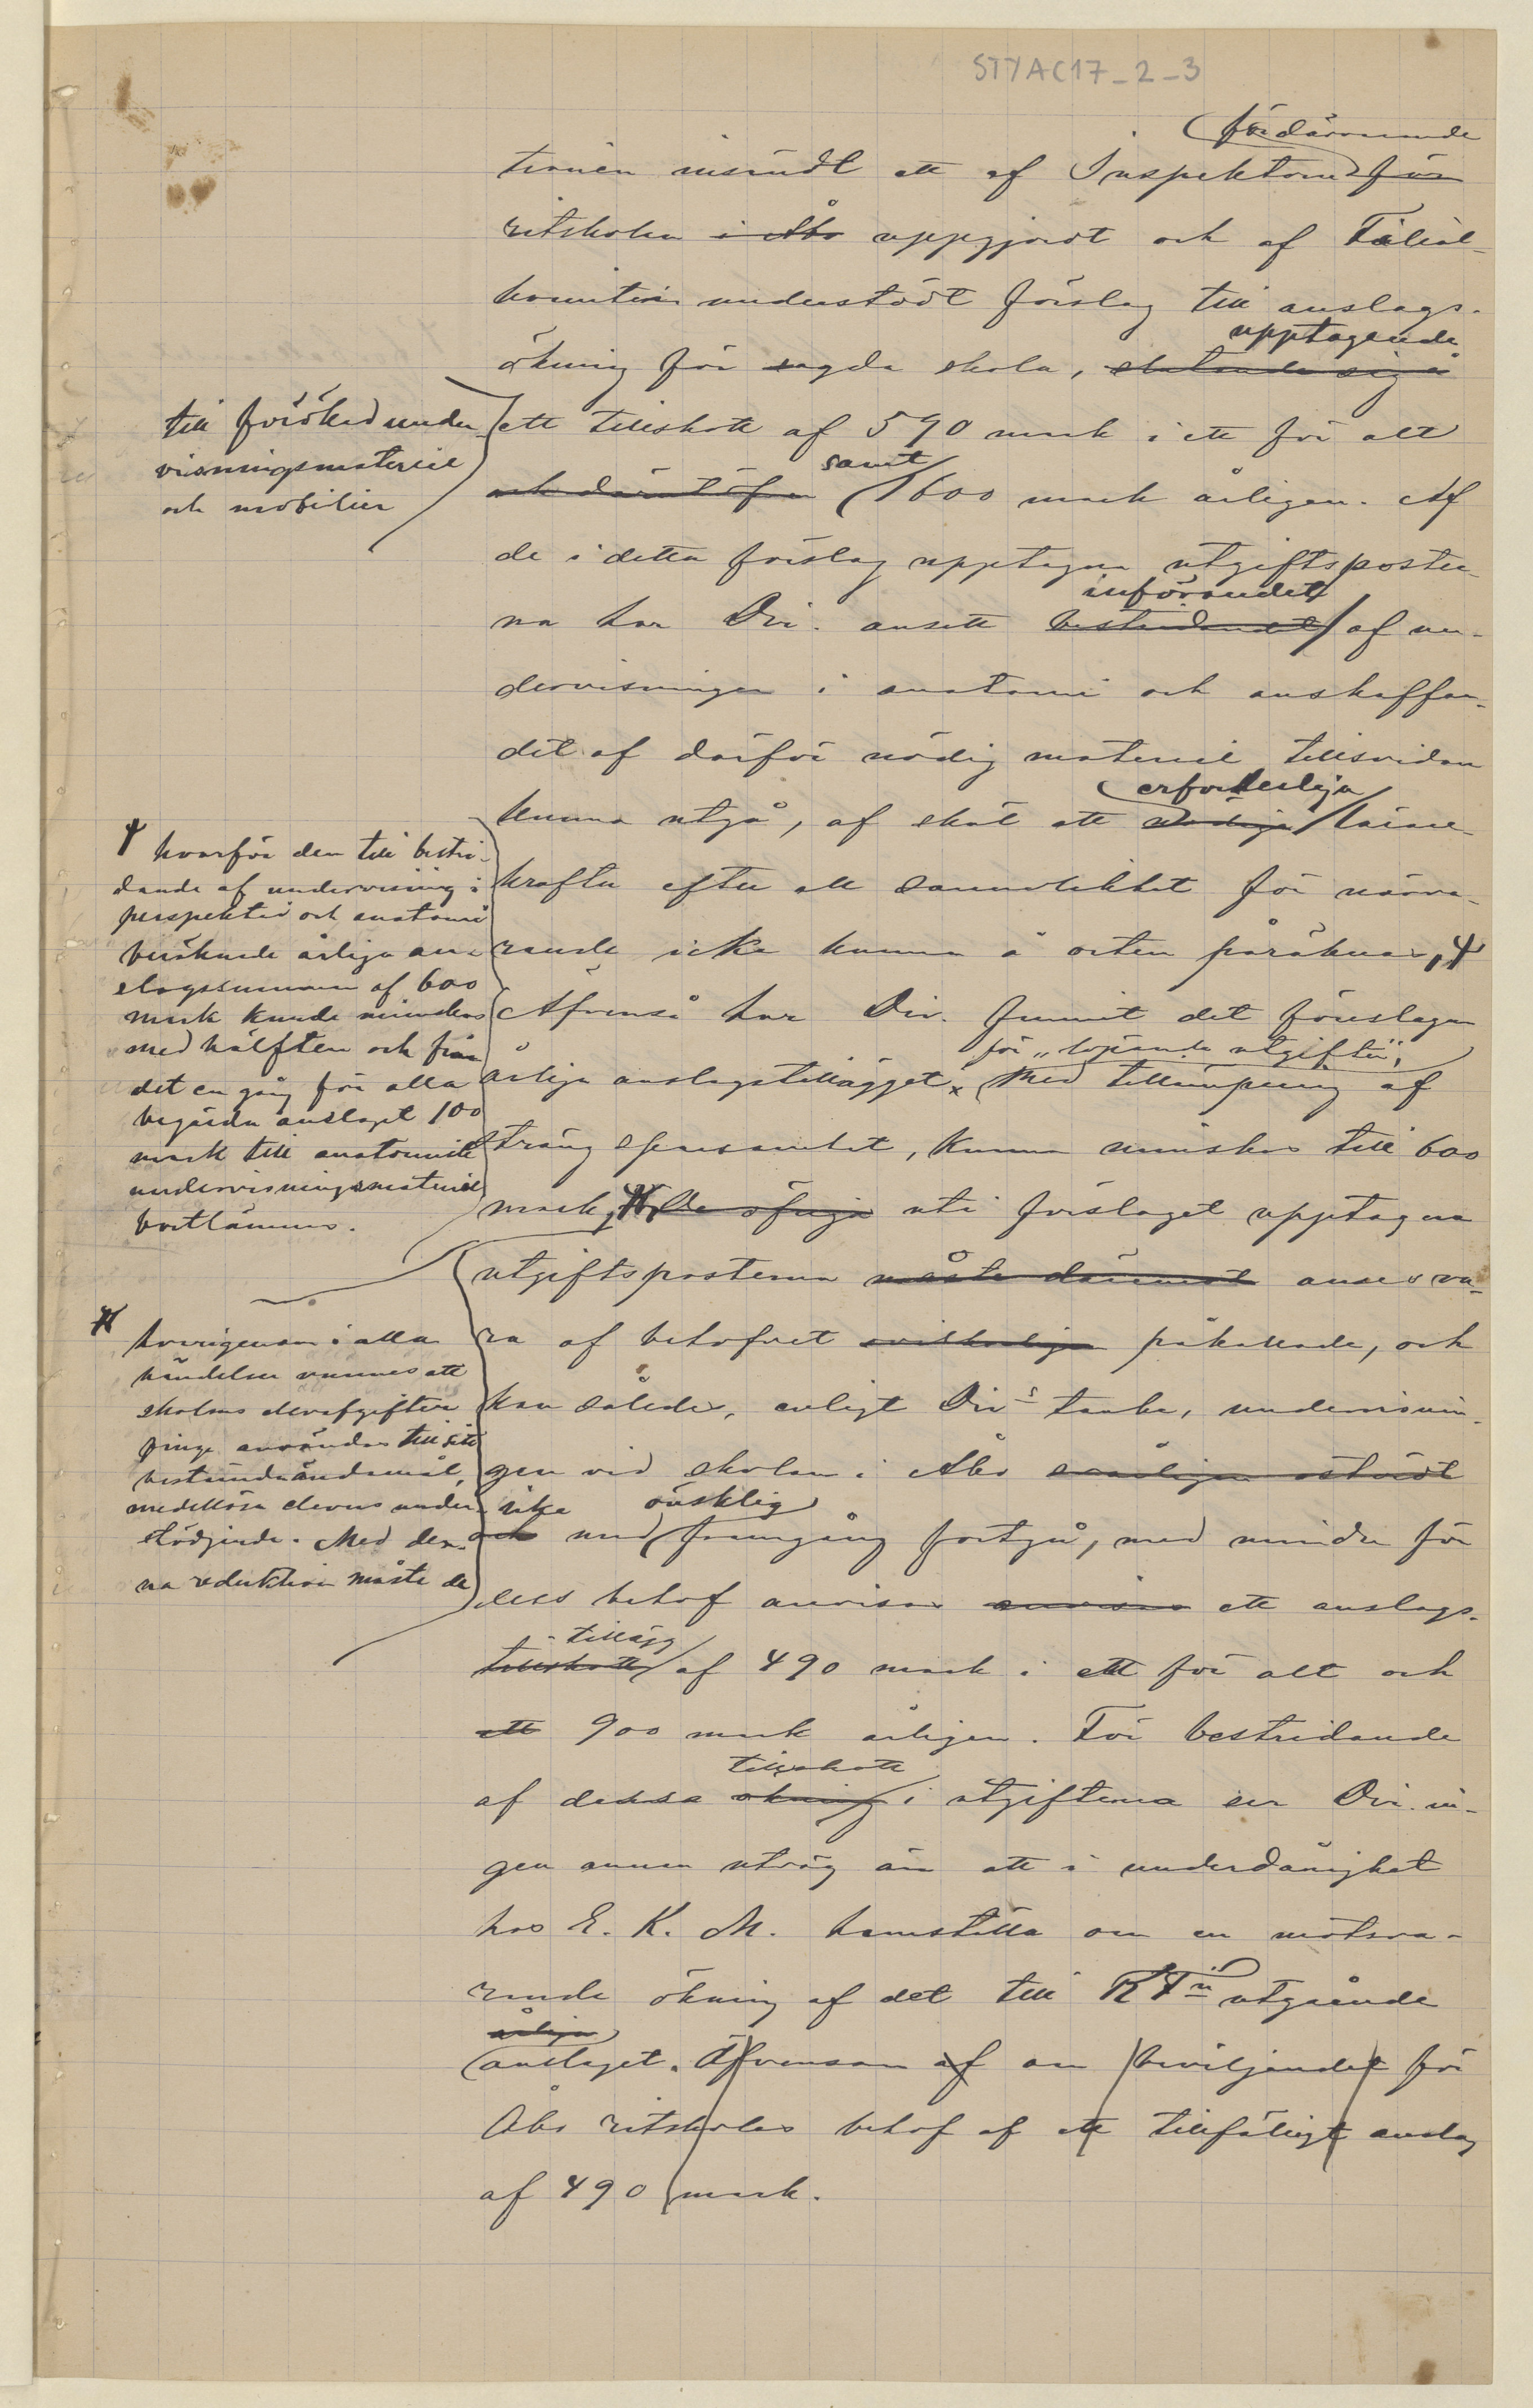 STYAC17_2_3
för därvarande
tionen insändt ett af Inspektorn för
ritskolan i Åbo uppgjordt och af Filial-
komitén understödt förslag till anslags-
upptagande
ökning för sagda skola, slutande sig å
ett tillskott af 590 mark i ett för allt
samt
och därutöfver 1600 mark årligen. Af
de i detta förslag upptagna utgiftsposter-
införandet
na har Dir. ansett bestridandet af un-
dervisningen i anatomi och anskaffan-
det af därför nödig materiel tillsvidare
erforderliga
kunna utgå, af skäl att nödiga lärare-
krafter efter all sannolikhet för närva-
rande icke kunna å orten påräknas,
Äfvenså har Dir. funnit det föreslagna
för "löpande utgifter",
årliga anslagstillägget, med tillämpning af
sträng sparsamhet, kunna minskas till 600
mark, De öfriga uti förslaget upptagna
utgiftsposterna måste däremot anses va-
ra af behofvet påkallade, och
kan således, enligt Dirs tanke, undervisnin-
gen vid skolan i Åbo
icke önsklig
och med framgång fortgå, med mindre för
dess behof anvisas anvisas ett anslags-
-tillägg
tillskott af 490 mark i ett för allt och
ett 900 mark årligen. För bestridande
tillskott
af dessa ökning i utgifterna ser Dir. in-
gen annan utväg än att i underdånighet
hos E. K. M. hemställa om en motsva-
rande ökning af det till KFn utgående
årliga
anslaget. Äfvensom af om beviljandet för
Åbo ritskolas behof af ett tillfälligt anslag
af 490 mark.
till förökad under-
visningsmateriel
och mobilier
hvarför den till bestri-
dande af undervisning i
perspektiv och anatomi
beräknade årliga an-
slagssumman af 600
mark kunde minskas
med hälften och från
det en gång för alla
begärda anslaget 100
mark till anatomisk
undervisningsmateriel
bortlämnas.
hvarigenom i alla
händelser vunnes att
skolans elevafgifter
finge användas till sitt
bestämda ändamål,
medellösa elevers under-
stödjande. Med den-
na reduktion måste de